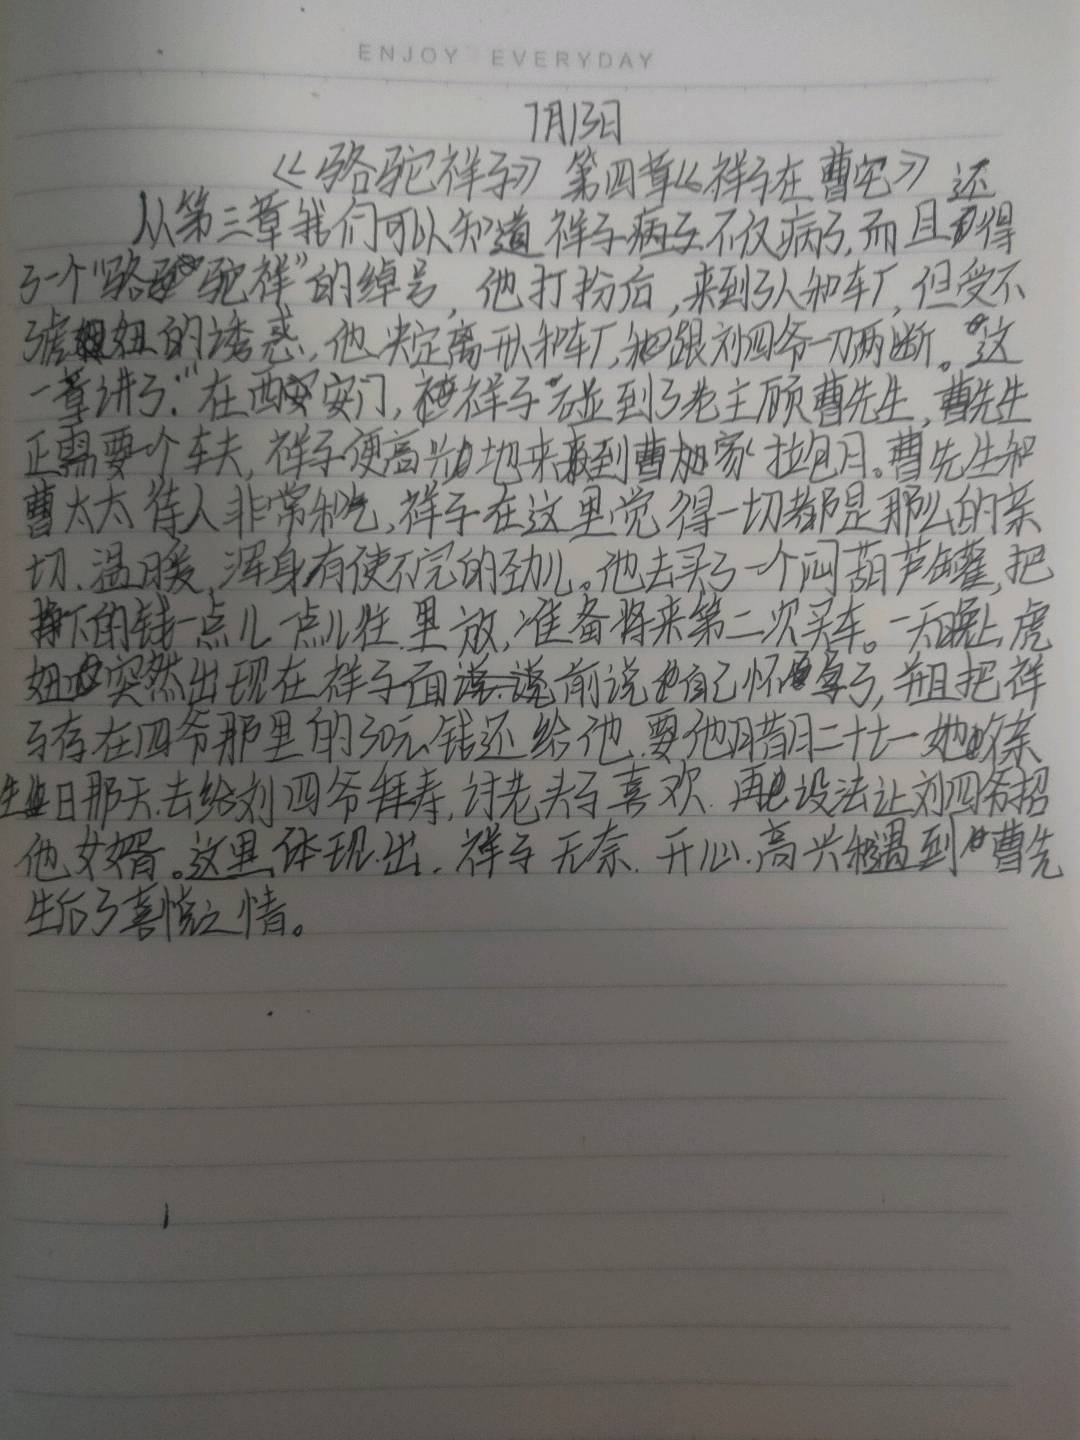 ENJOY EVERYDAY
7月13日
《骆驼祥子》第四章《祥子在曹宅》
从第三章我们可以知道祥子病了不仅病了,而且还得
了一个"骆驼祥"的绰号,他打扮后,来到了人和车厂,但受不
了虎妞的诱惑,他决定离开人和车厂,和跟刘四爷一刀两断。这
一章讲了:在西安门,祥子碰到了老主顾曹先生,曹先生
正需要个车夫,祥子便高兴地来到曹家拉包月。曹先生和
曹太太待人非常和气,祥子在这里觉得一切都是那么的亲
切、温暖,浑身有使不完的劲儿。他去买了一个闷葫芦罐,把
挣下的钱一点儿一点儿往里放,准备将来第二次买车。一天晚上,虎
妞突然出现在祥子面前说自己怀孕了,并且把祥
子存在四爷那里的30元钱还给他,要他腊月二十七一她父亲
生日那天去给刘四爷拜寿,讨老头子喜欢,再设法让刘四爷招
他女婿。这里体现出,祥子无奈、开心、高兴和遇到曹先
生后了喜悦之情。